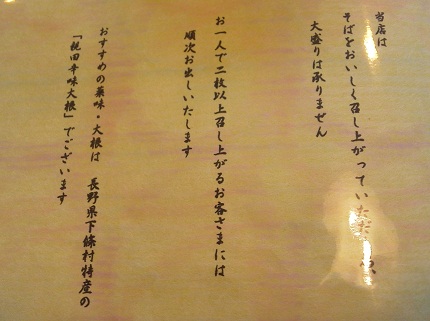 当店は
そばをおいしく召し上がっていただ
大盛りは承りません
お一人で二枚以上召し上がるお客さまには
順次お出しいたします
おすすめの薬味・大根は 長野県下條村特産の
「親田辛味大根」でございます